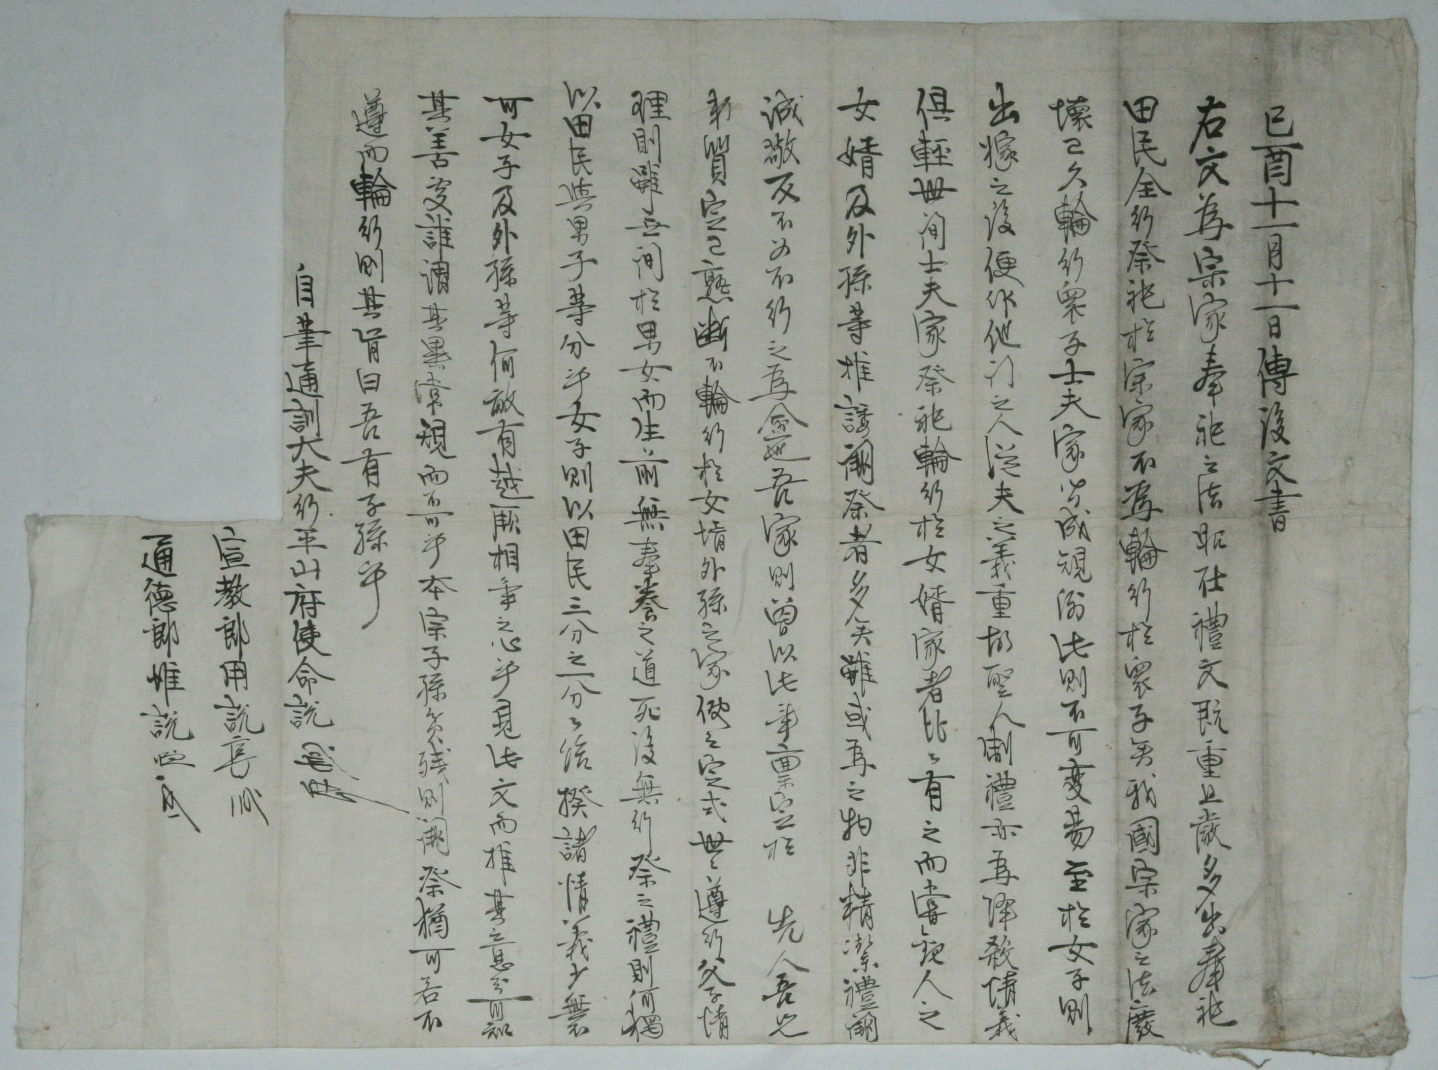 己酉十一月十一日傳後文書
右文爲宗家奉祀之法昭在禮文旣重且嚴多出奉祀
田民全行祭祀於宗家不爲輪行於衆子矣我國宗家之法廢
壞已久輪行衆子士夫家皆成規例此則不可變易至於女子則
出嫁之後便作他門之人從夫之義重故聖人制禮亦爲降殺情義
俱輕世間士夫家祭祀輪行於女婿家者比比有之而嘗觀人之
女婿及外孫等推諉闕祭者多矣雖或爲之物非精潔禮闕
誠敬反不如不行之爲愈也吾家則曾以此事稟定於 先人吾兄
弟質定已熟斷不輪行於女婿外孫之家使之定式世世遵行父子情
理則雖無間於男女而生前無奉養之道死後無行祭之禮則何獨
以田民與男子等分乎女子則以田民三分之一分分給揆諸情義少無
可女子及外孫等何敢有越厥相爭之心乎見此文而推其意則可知
其善變誰謂其異常規而不可乎本宗子孫貧殘則闕祭猶可若不
遵而輪行則其肯曰吾有子孫乎
自筆通訓大夫行平山府使命說
宣教郞用說
通德郞惟說